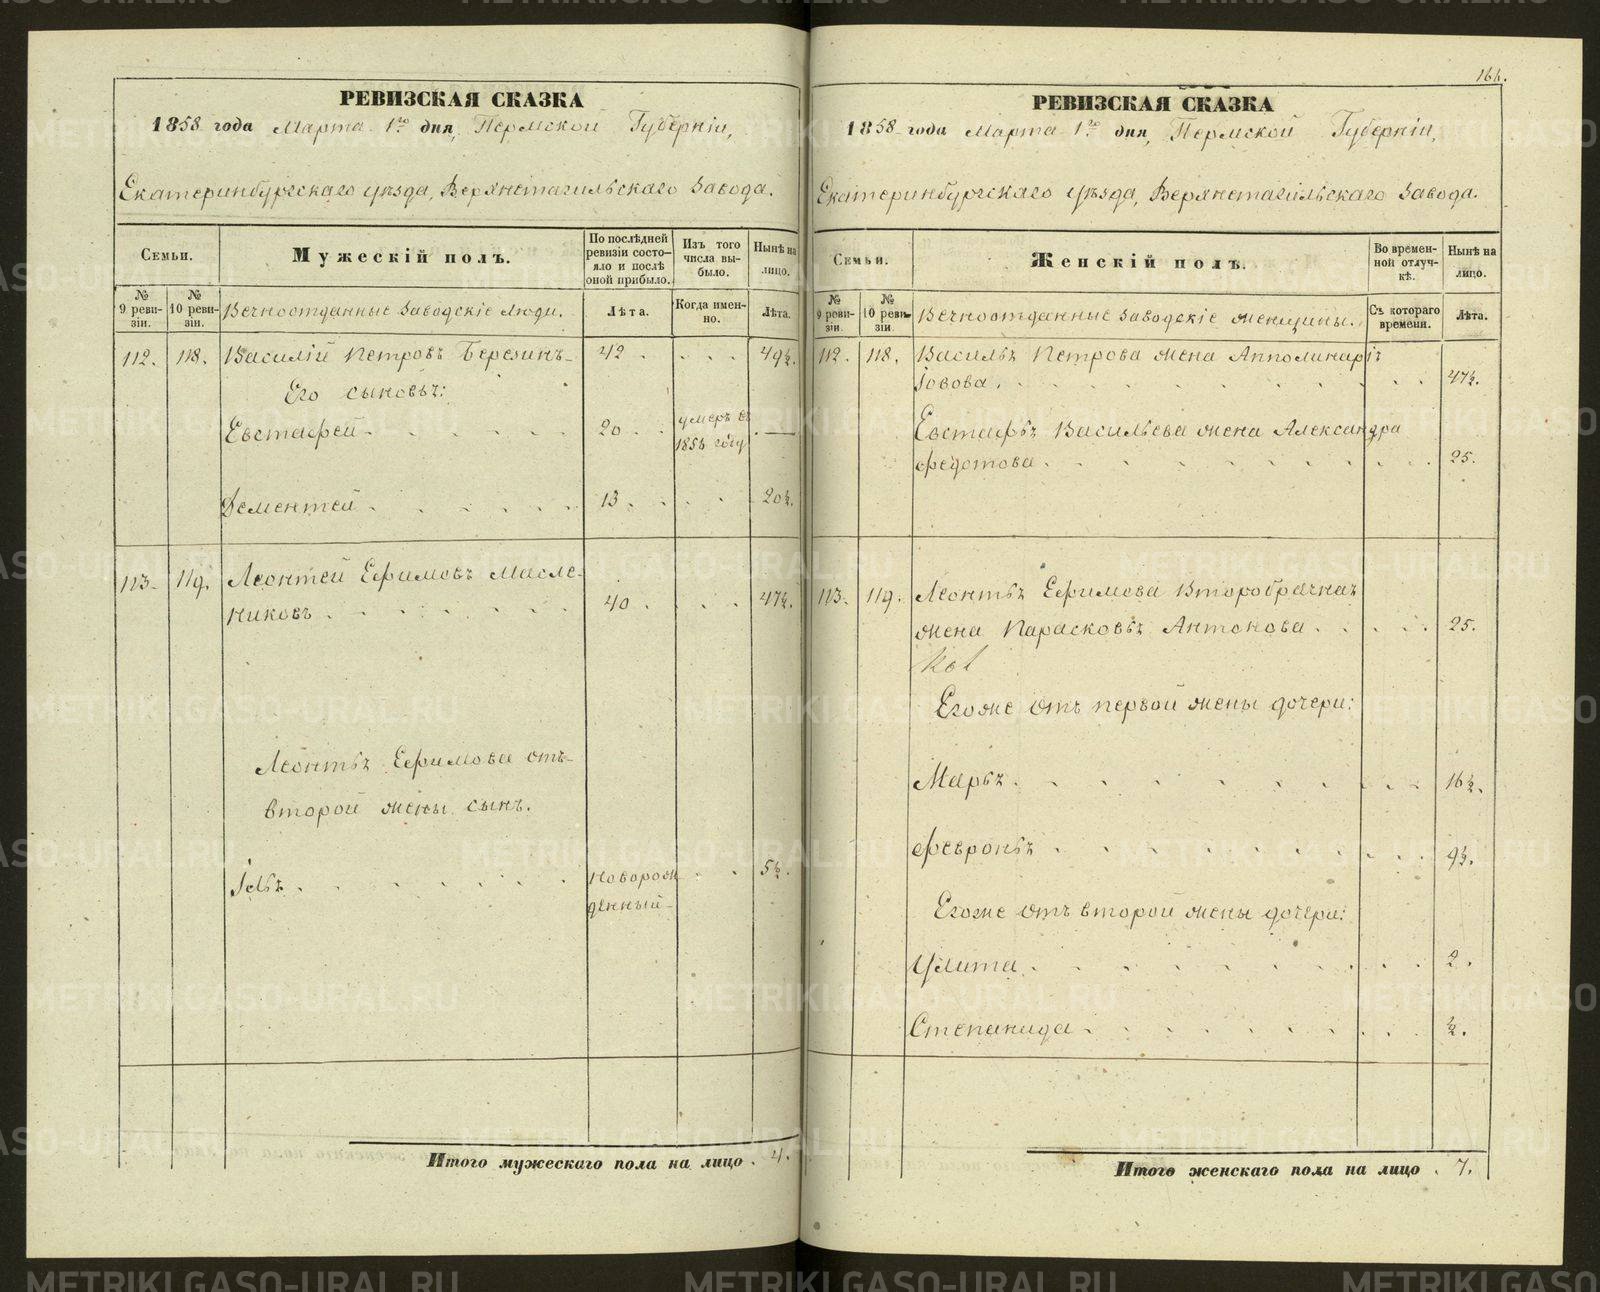 РЕВИЗСКАЯ СКАЗКА
1858 года Марта 1го дня, Пермской Губерніи,
Екатеринбургскаго уѣзда, Верхнетагильскаго Завода.
Семьи.
Мужескій полъ.
По послѣдней ревизіи состояло и послѣ оной прибыло.
Изъ того числа выбыло.
Нынѣ на лицо.
№ 9 ревизіи.
№ 10 ревизіи.
Вечноотданные Заводскіе Люди.
Лѣта.
Когда именно.
Лѣта.
112. 118. Василій Петровъ Березинъ 42 . . . . 49½.
Его сыновья:
Евстафей 20 . . умеръ въ 1856 году . —
Дементей 13 . . . . 20½.
113. 119. Леонтей Ефимовъ Масле-
никовъ 40 . . . . 47½.
Леонтья Ефимова отъ
второй жены сынъ.
Іовъ новорож-денный . . 5½.
Итого мужескаго пола на лицо . 4.
166.
РЕВИЗСКАЯ СКАЗКА
1858 года Марта 1го дня, Пермской Губерніи,
Екатеринбургскаго уѣзда, Верхнетагильскаго Завода.
Семьи.
Женскій полъ.
Во временной отлучкѣ.
Нынѣ на лицо.
№ 9 ревизіи.
№ 10 ревизіи.
Вечноотданные Заводскіе женщины.
Съ котораго времени.
Лѣта.
112. 118. Василья Петрова жена Апполинарія
Іовова. 47½.
Евстафья Васильева жена Александра
Федотова. 25.
113. 119. Леонтья Ефимова Второбрачная
жена Парасковья Антонова . 25.
Егоже отъ первой жены дочери:
Марья. 16½.
Февронья 9½.
Егоже отъ второй жены дочери:
Улита 2.
Степанида ½.
Итого женскаго пола на лицо . 7.
METRIKI.GASO-URAL.RU